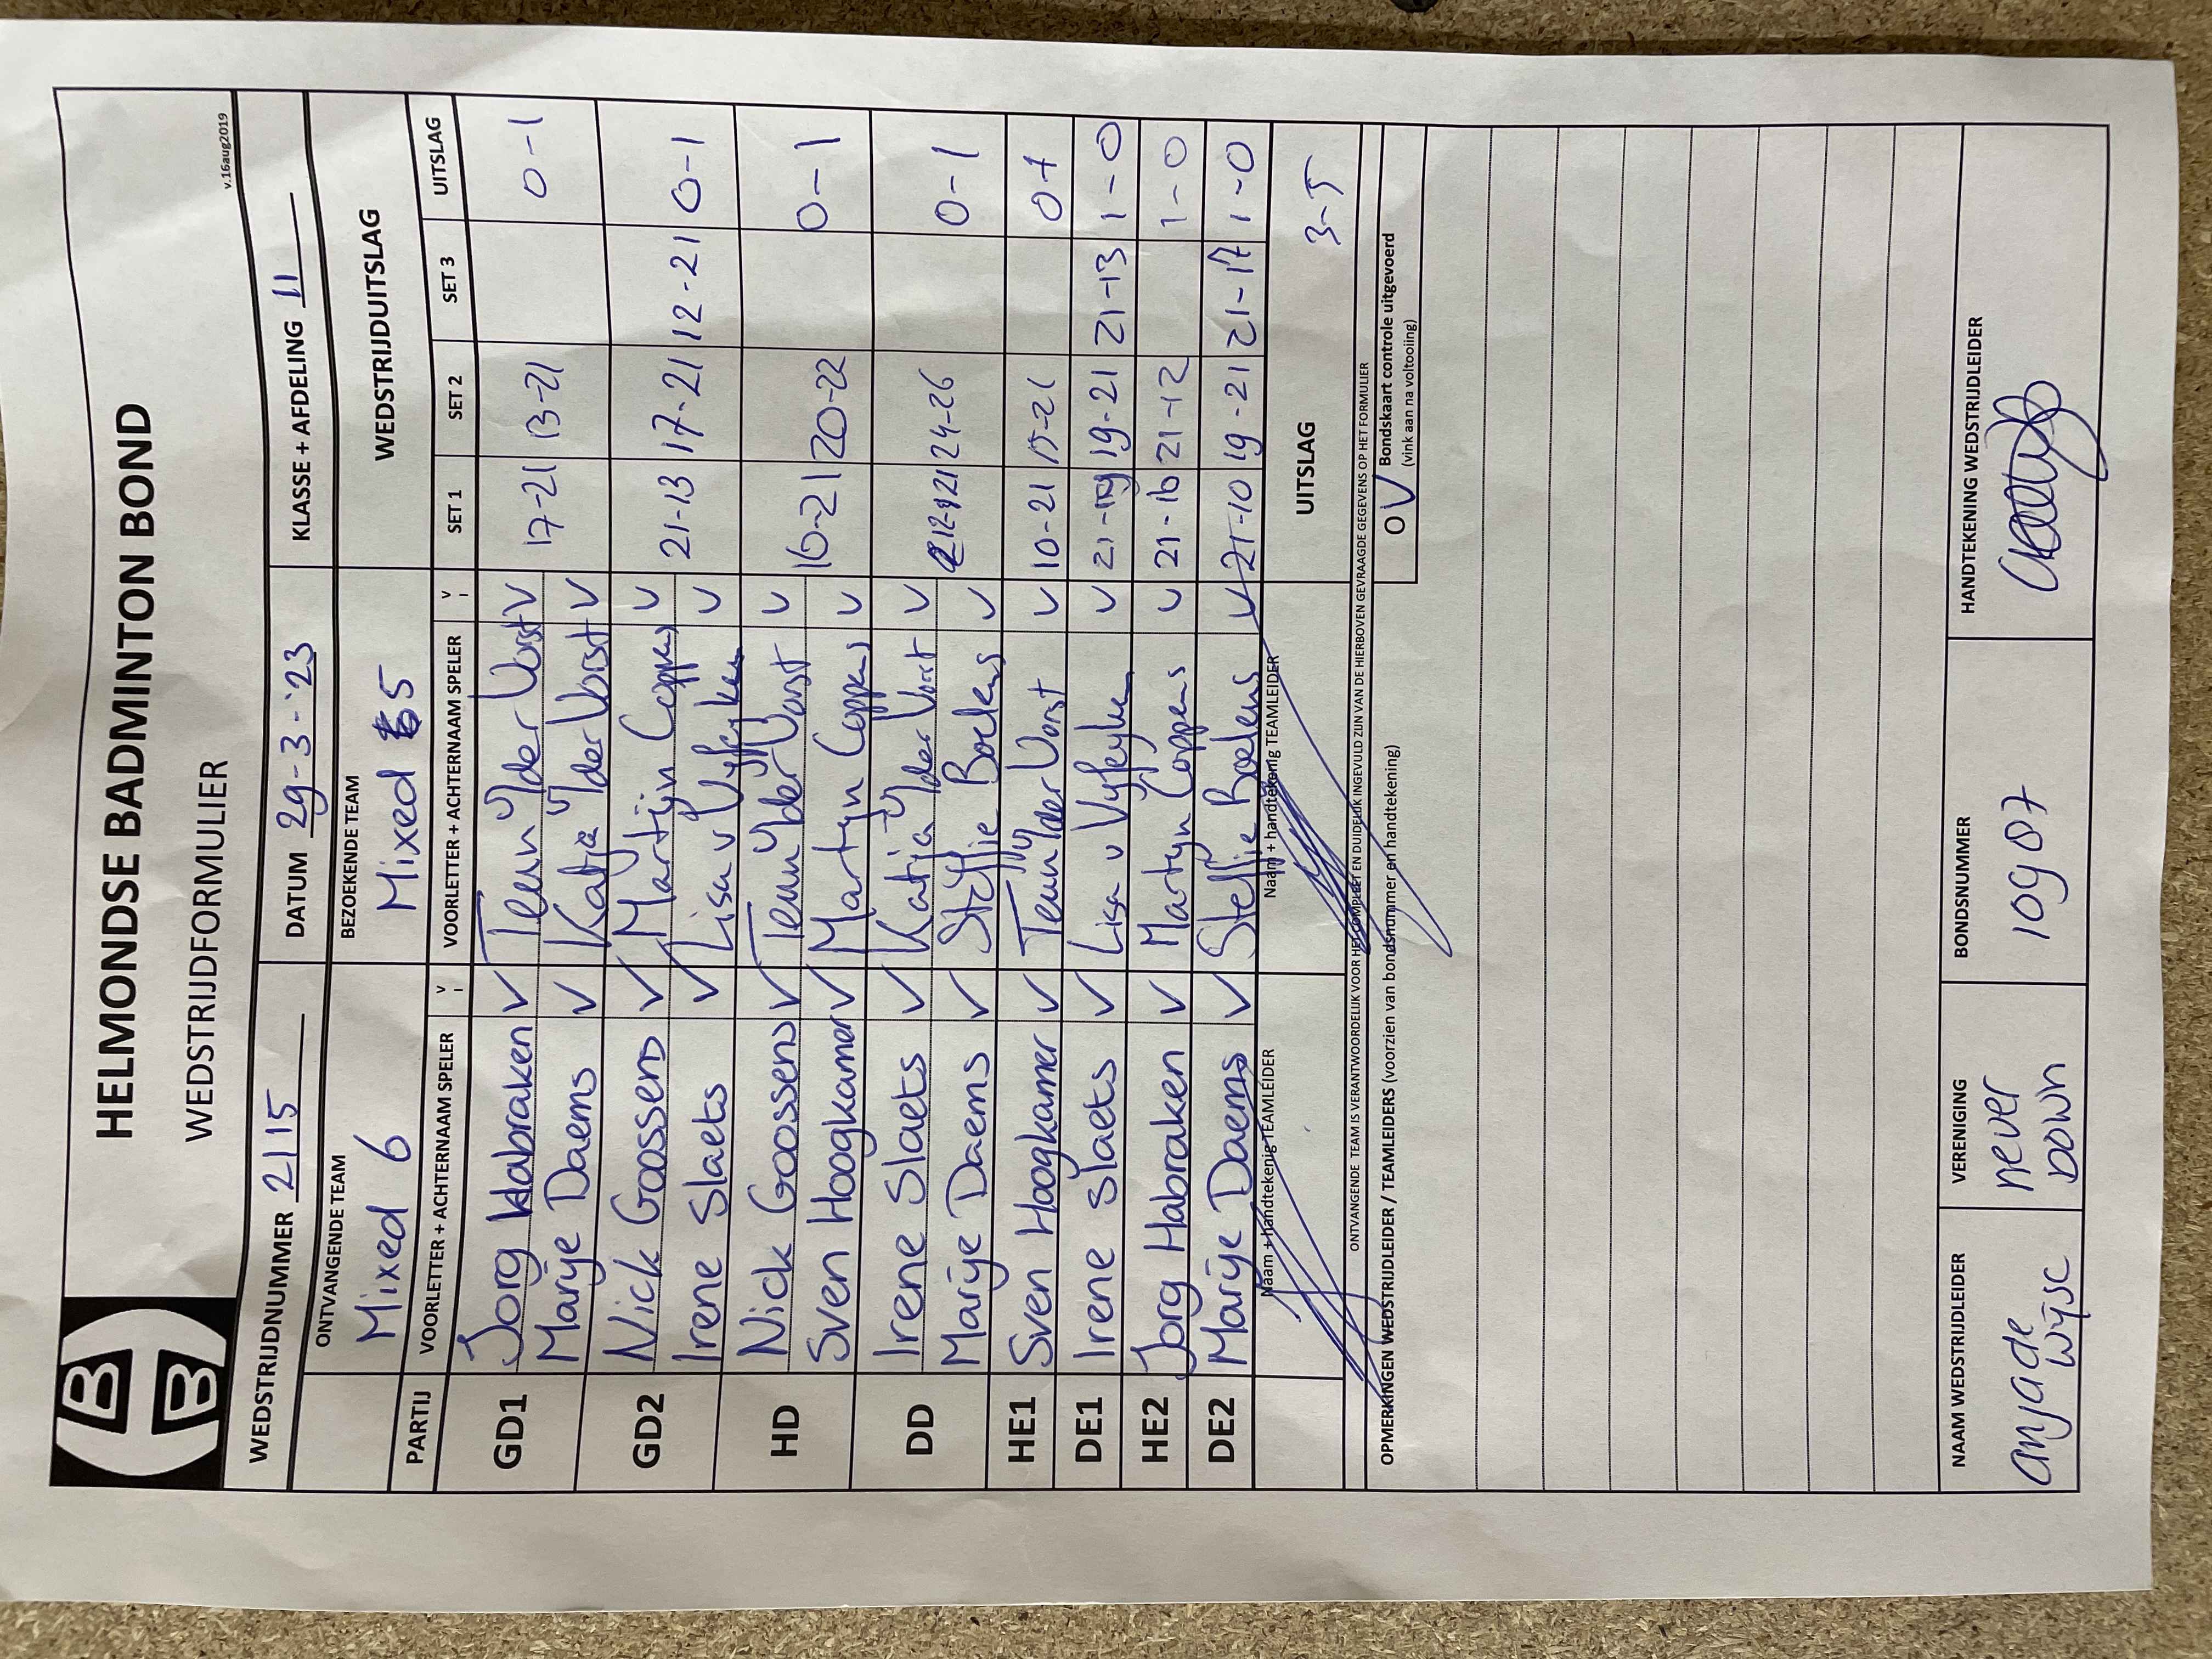 HELMONDSE BADMINTON BOND
WEDSTRIJDFORMULIER
v.16aug2019
WEDSTRIJDNUMMER 2115 DATUM 29-3-'23 KLASSE + AFDELING 11
ONTVANGENDE TEAM BEZOEKENDE TEAM WEDSTRIJDUITSLAG
Mixed 6 Mixed 5
PARTIJ VOORLETTER + ACHTERNAAM SPELER V VOORLETTER + ACHTERNAAM SPELER V SET 1 SET 2 SET 3 UITSLAG
GD1 Jorg Habraken V Teun v der Vorst V 17-21 13-21 0-1
Marije Daems V Katja v der Vorst V
GD2 Nick Goossens V Martijn Coppens V 21-13 17-21 12-21 0-1
Irene Slaets V Lisa v Vijfeyken V
HD Nick Goossens V Teun v der Vorst V 16-21 20-22 0-1
Sven Hoogkamer V Martijn Coppens V
DD Irene Slaets V Katja v der Vorst V 24-26 0-1
Marije Daems V Steffie Boelens V
HE1 Sven Hoogkamer V Teun v der Vorst V 10-21 15-21 0-1
DE1 Irene Slaets V Lisa v Vijfeyken V 21-19 19-21 21-13 1-0
HE2 Jorg Habraken V Martijn Coppens V 21-16 21-12 1-0
DE2 Marije Daems V Steffie Boelens V 21-10 19-21 21-17 1-0
Naam + handtekenig TEAMLEIDER Naam + handtekenig TEAMLEIDER UITSLAG 3-5
ONTVANGENDE TEAM IS VERANTWOORDELIJK VOOR HET COMPLEET EN DUIDELIJK INGEVULD ZIJN VAN DE HIERBOVEN GEVRAAGDE GEGEVENS OP HET FORMULIER
OPMERKINGEN WEDSTRIJDLEIDER / TEAMLEIDERS (voorzien van bondsnummer en handtekening)
O V Bondskaart controle uitgevoerd
(vink aan na voltooiing)
NAAM WEDSTRIJDLEIDER VERENIGING BONDSNUMMER HANDTEKENING WEDSTRIJDLEIDER
anja de never 10907
Wijse Down